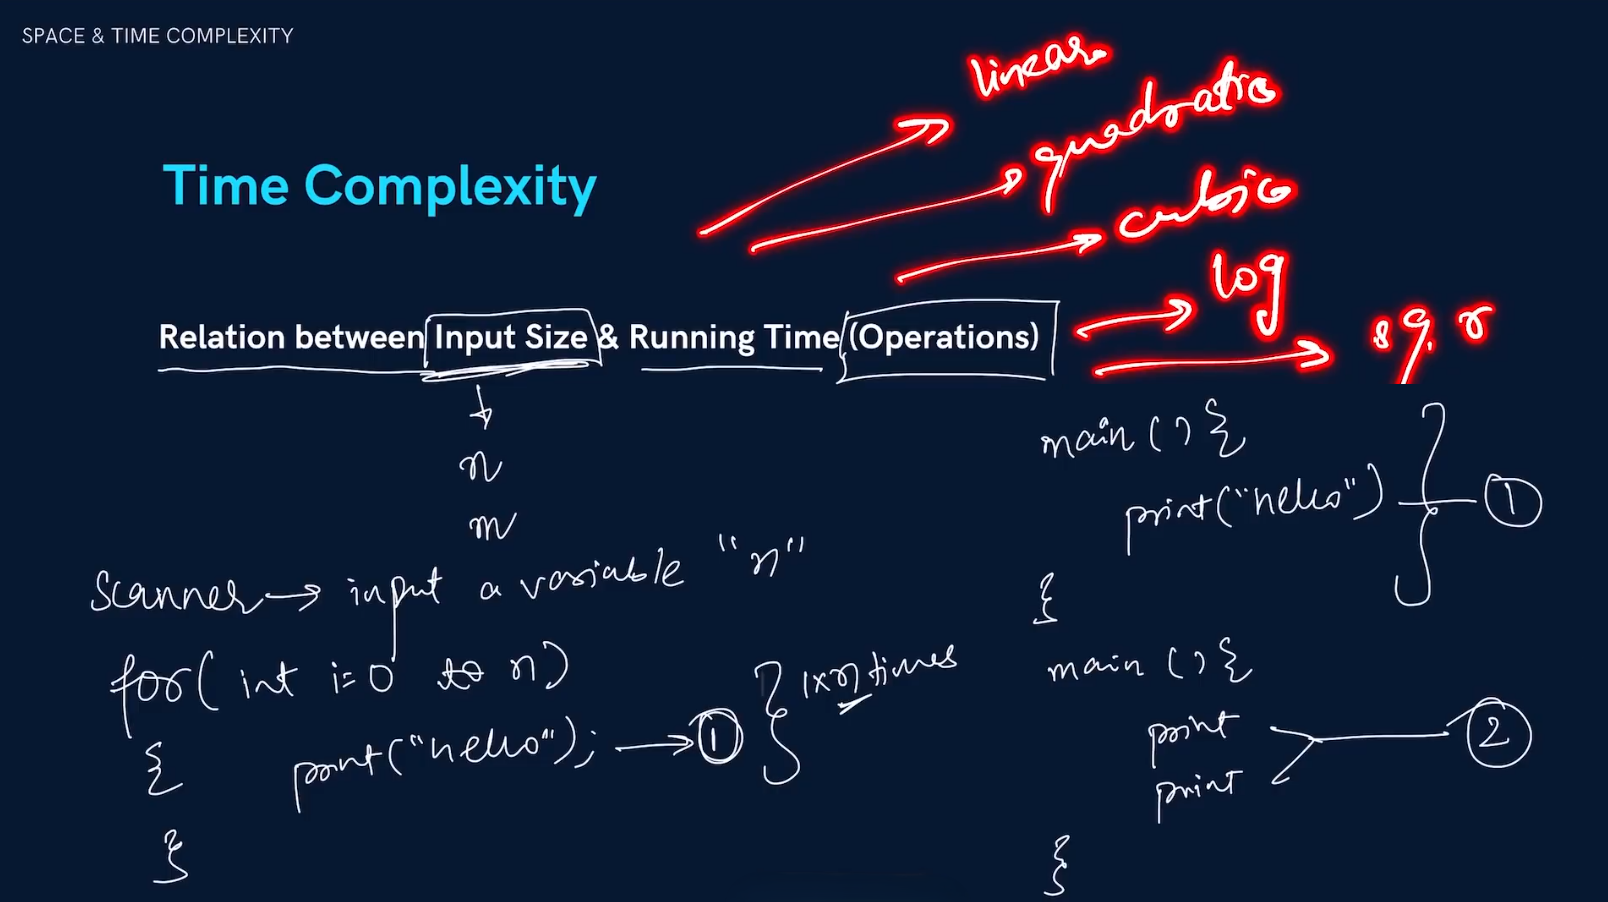 SPACE & TIME COMPLEXITY
linear
quadratic
cubic
log
sq. r
Time Complexity
Relation between Input Size & Running Time (Operations)
n
m
Scanner → input a variable "n"
for( int i=0 to n)
{
print("hello"); → 1
}
} 1xn times
main () {
print("hello") 1
}
main () {
print
print
2
}